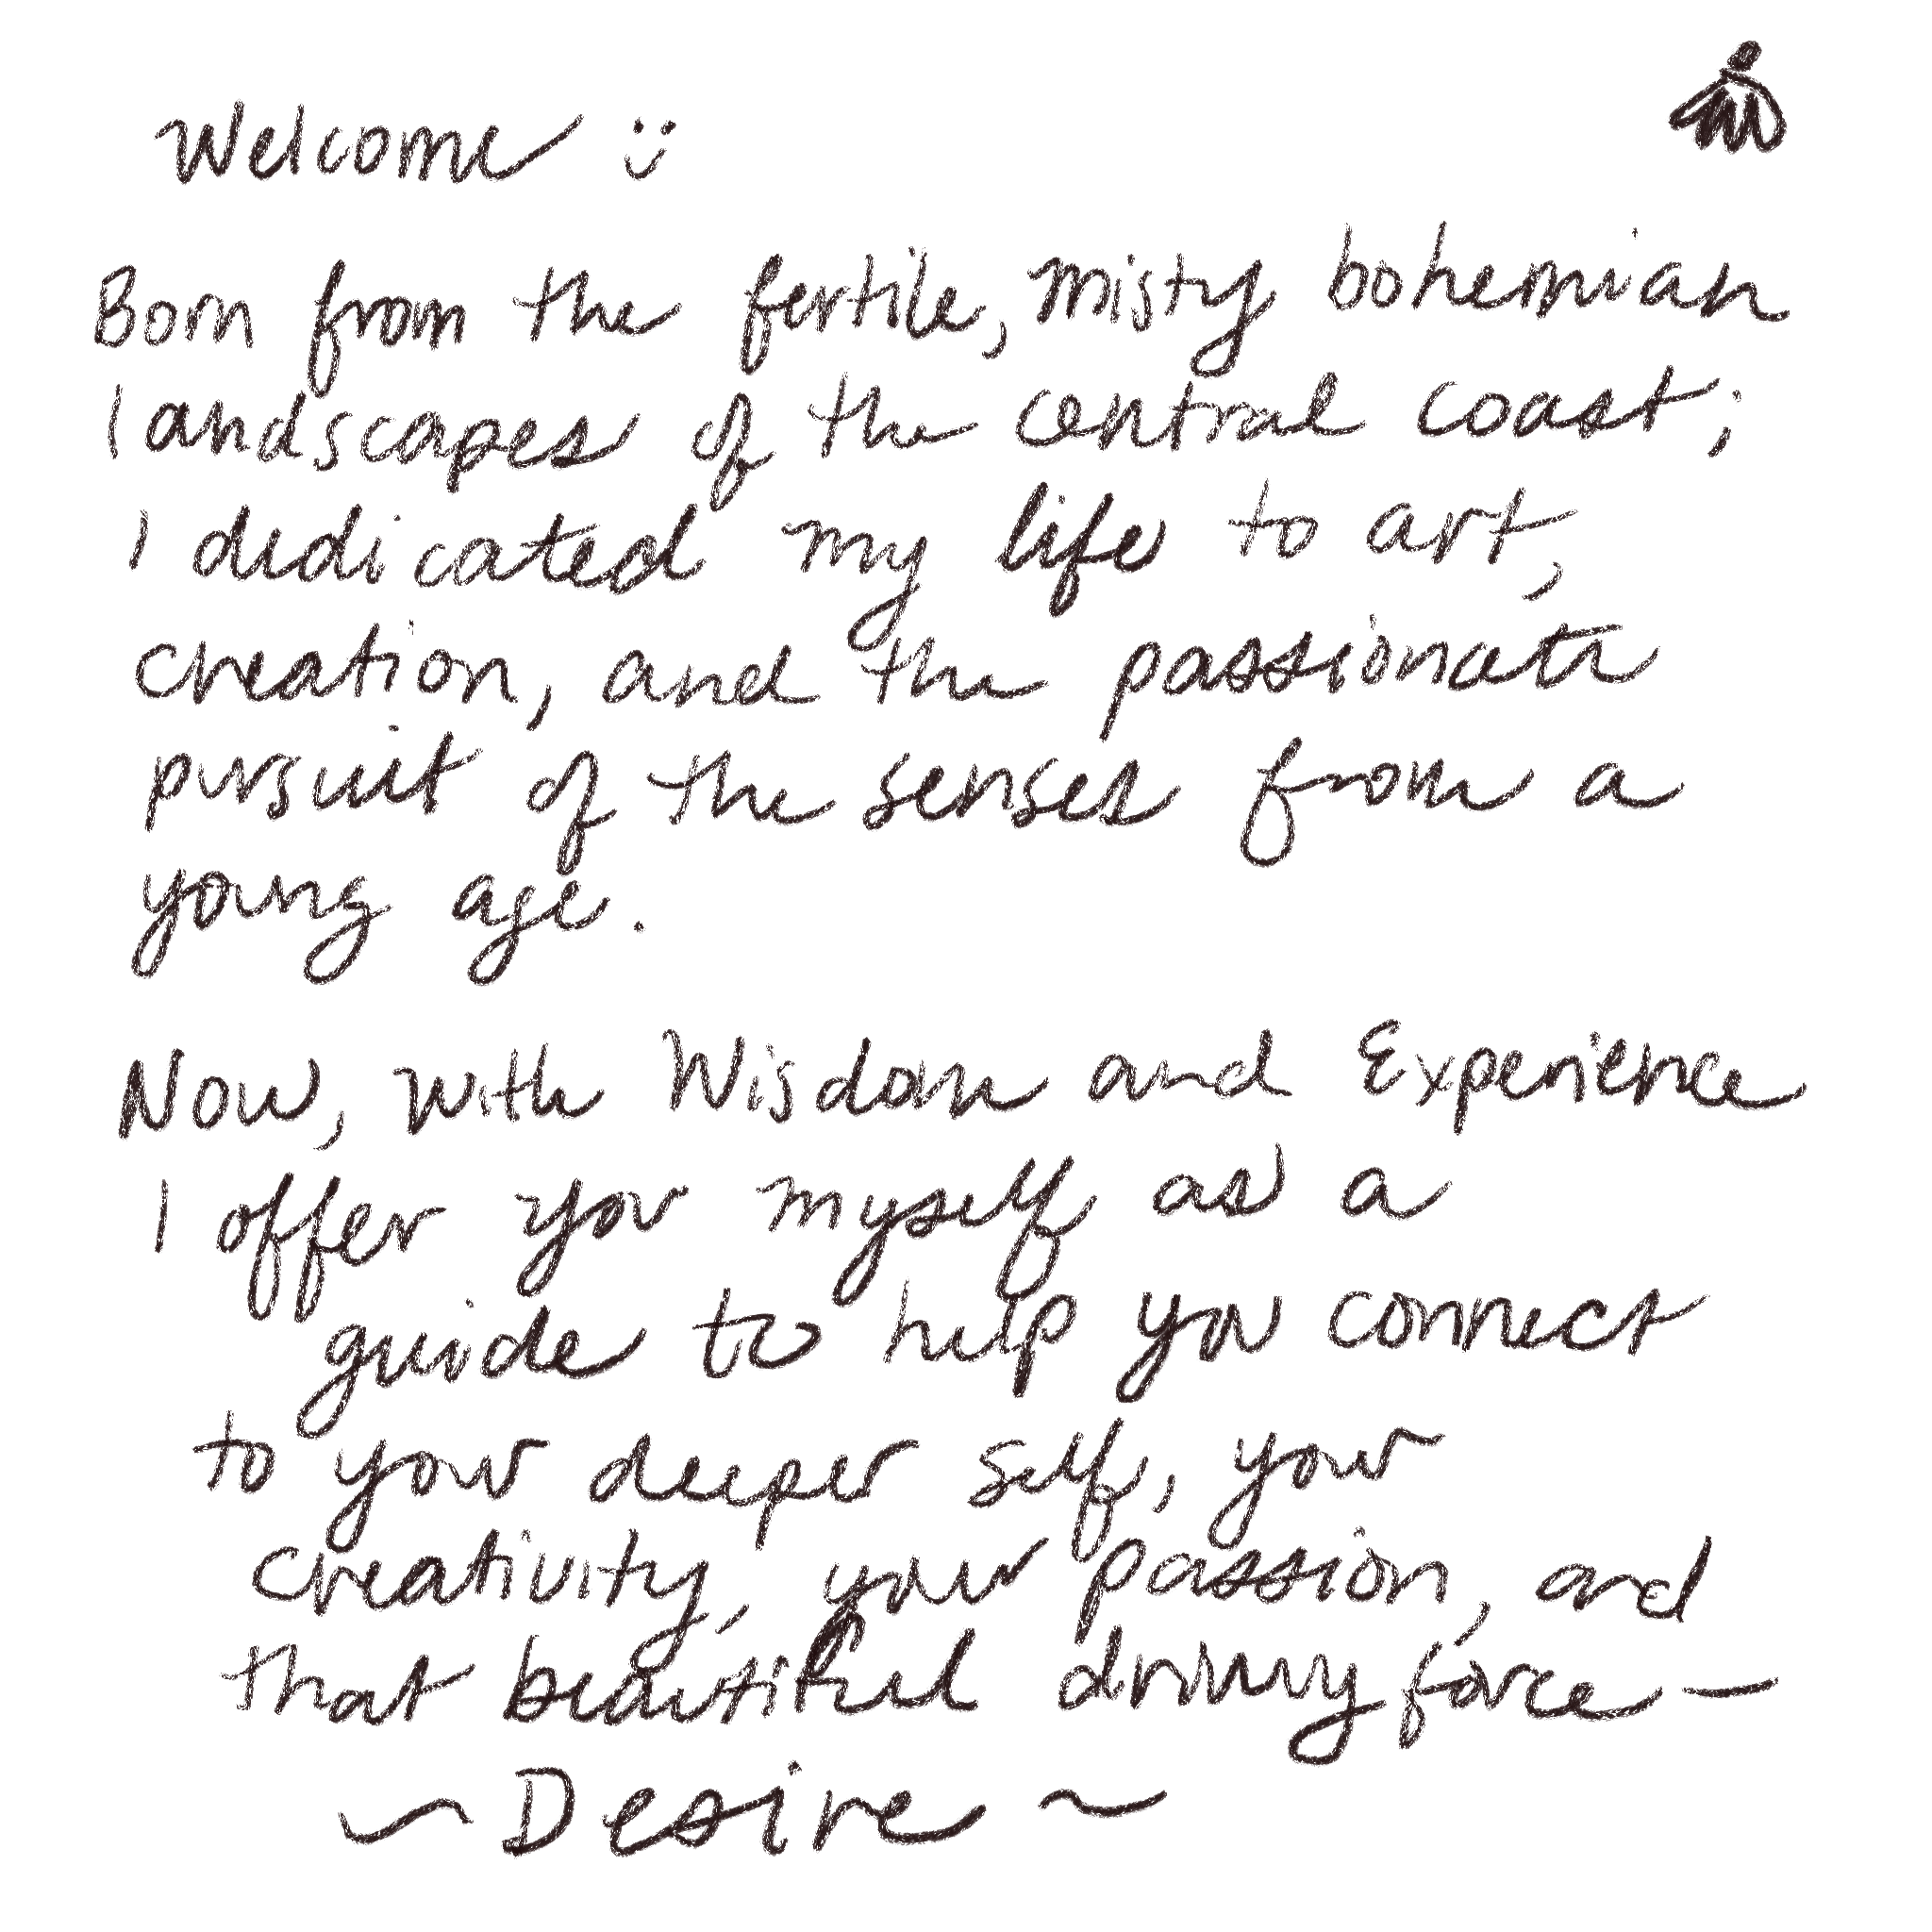 Welcome :)
Born from the fertile, misty bohemian
landscapes of the central coast;
I dedicated my life to art,
creation, and the passionate
pursuit of the senses from a
young age.
Now, with Wisdom and Experience
I offer you myself as a
guide to help you connect
to your deeper self, your
creativity, your passion, and
that beautiful driving force —
~ Desire ~